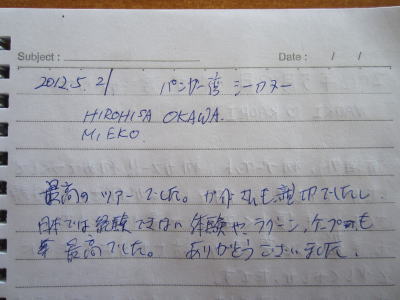 Subject : Date : / /
2012.5.21 パンガー湾 シーカヌー
HIROHISA OKAWA.
MIEKO.
最高のツアーでした。ガイドさんも親切でしたし
日本では経験できない体験や、ラグーン、ケーブも
最高でした。 ありがとうございました。